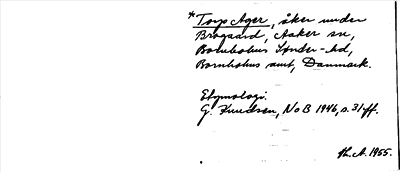 *Torp Ager, åker under
Brogaard, Aaker sn,
Bornholms Sønder-hd,
Bornholms amt, Danmark.
Etymologi.
G. Knudsen, NoB 1946, s. 31ff.
Th. A. 1955.